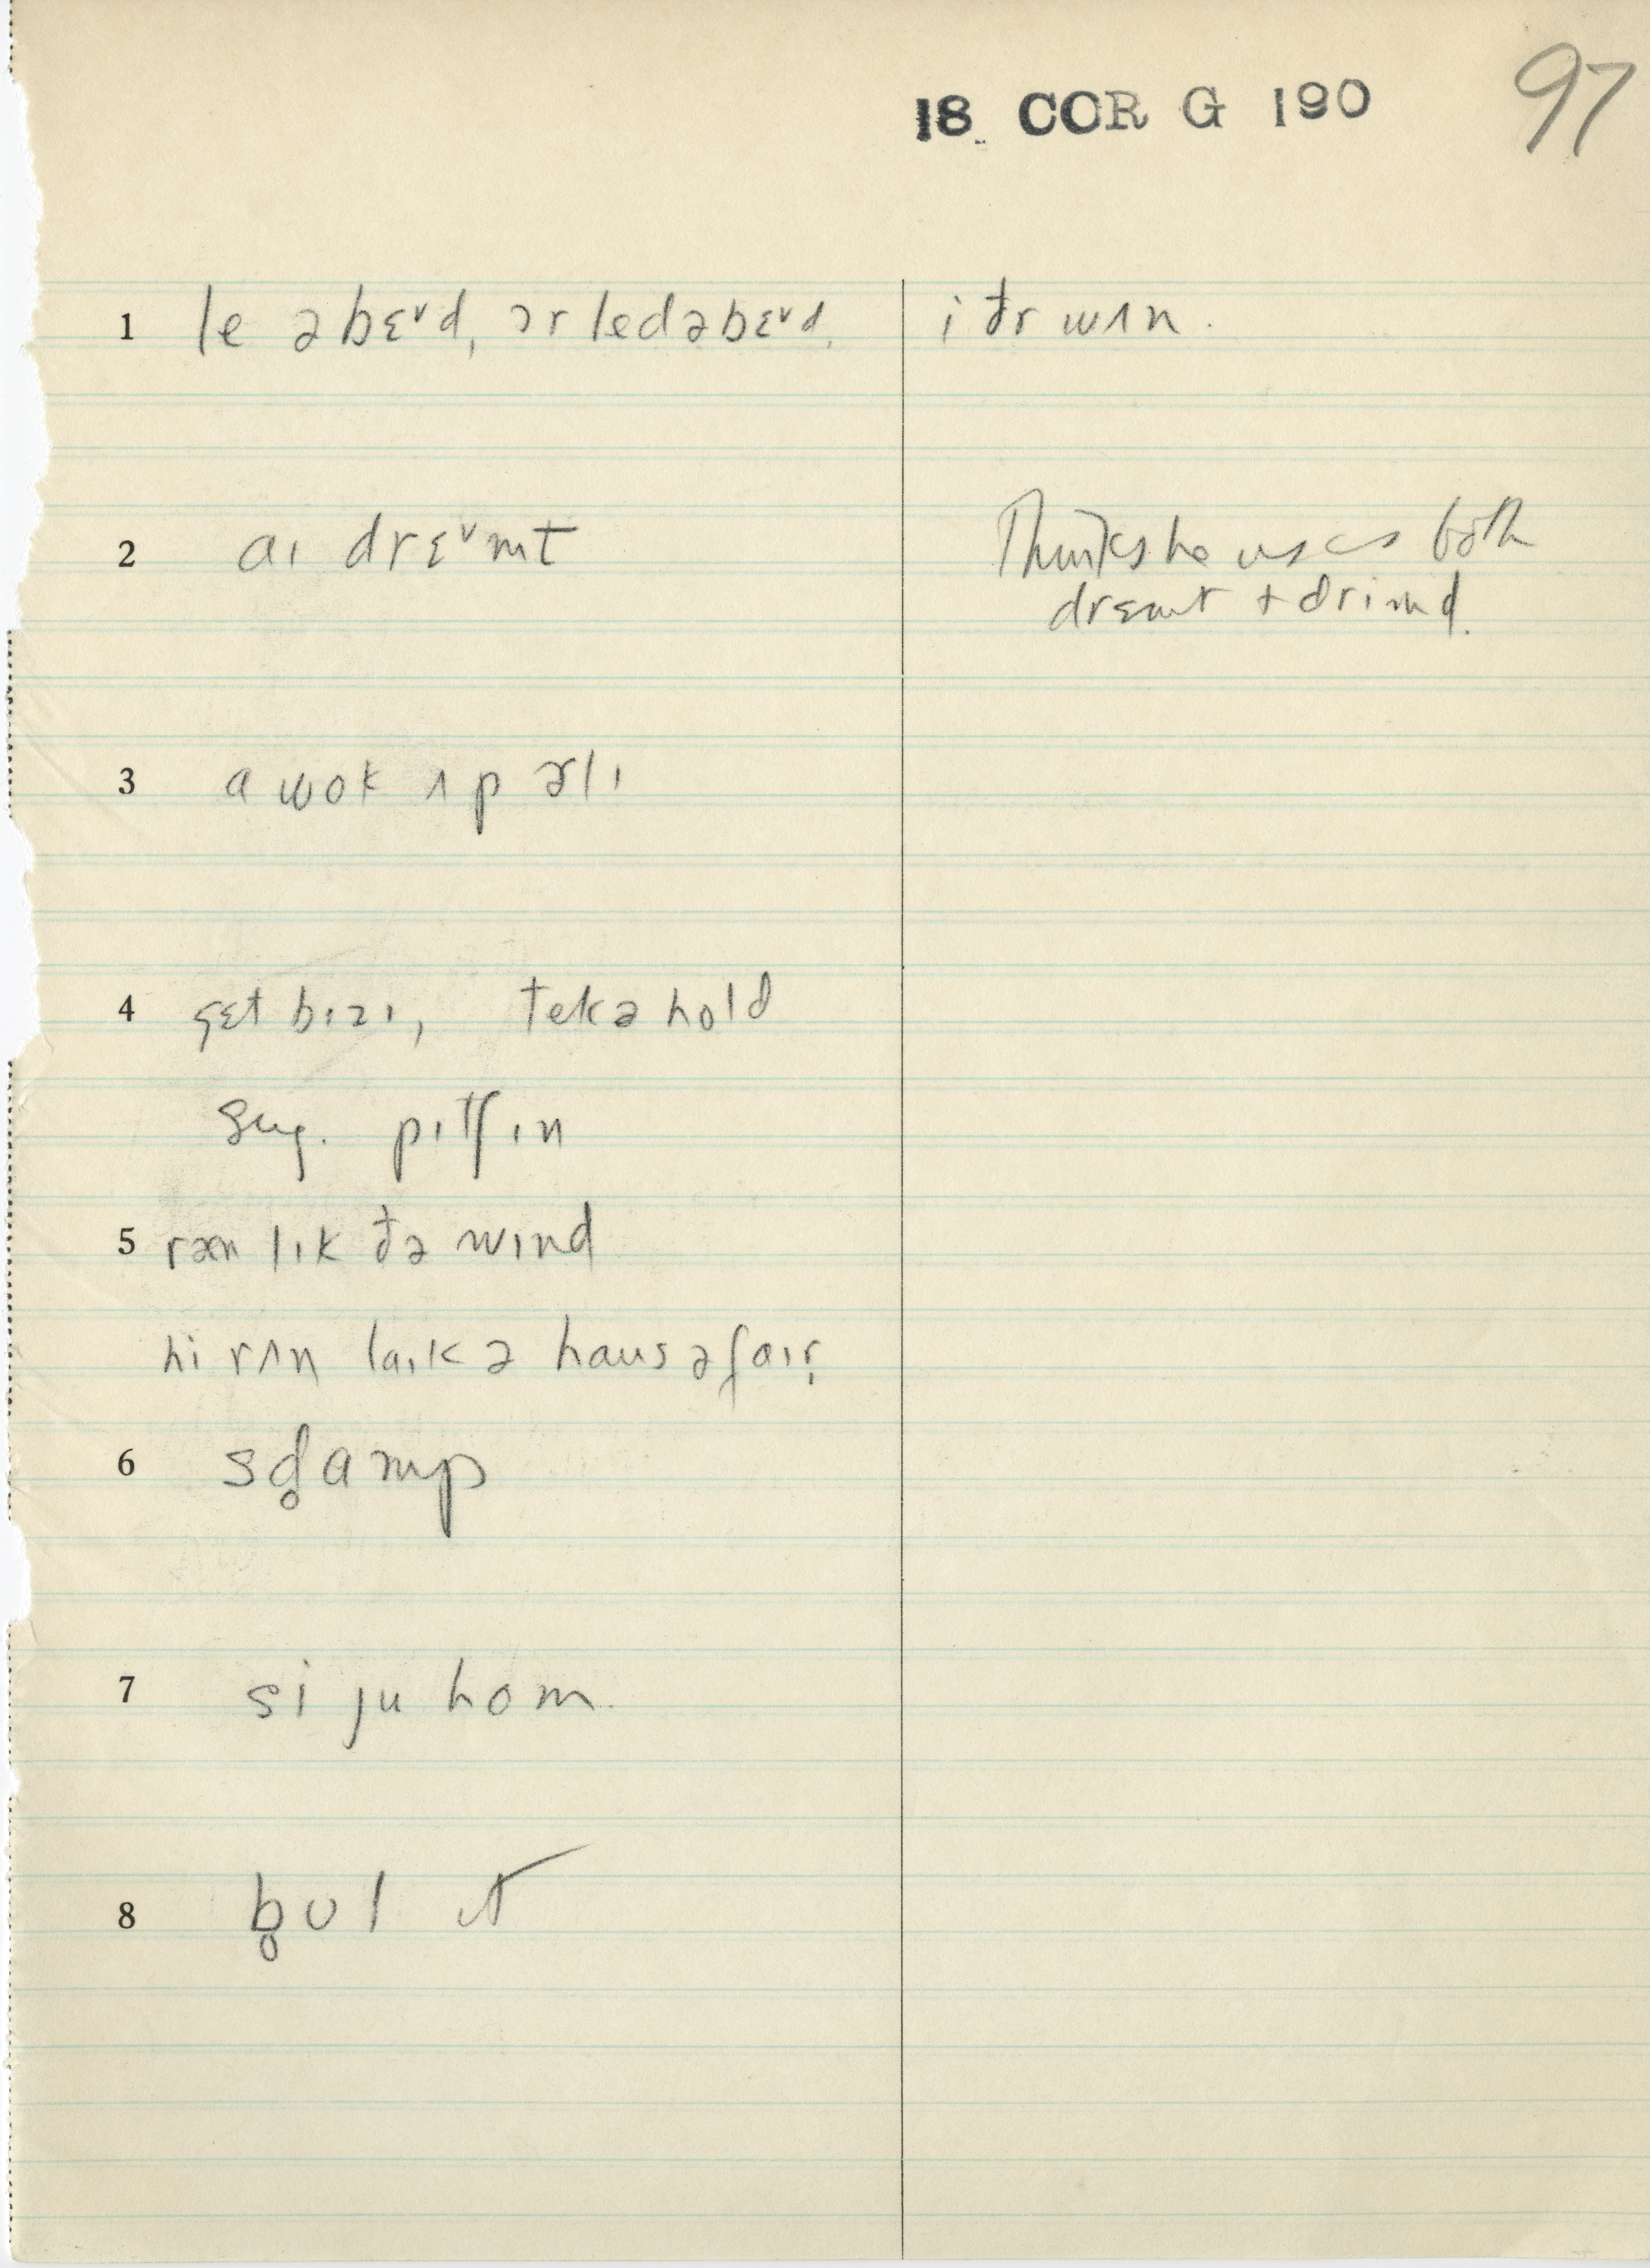 18 COR G 190 97
1 le əbɛᵛd, ɔr led əbɛᵛd. i đr wʌn.
2 aɪ drɛᵛmt Thinks he uses both
drɛmt + drimd.
3 a wok ʌp ɚlɪ
4 gɛt bɪzɪ, tek ə hold
sug. pɪtʃ ɪn
5 ræn lɪk đə wɪnd
hi rʌn laɪk ə haus əfaɪr̩
6 sd̥amp
7 si ju hom.
8 b̥ul ɪt